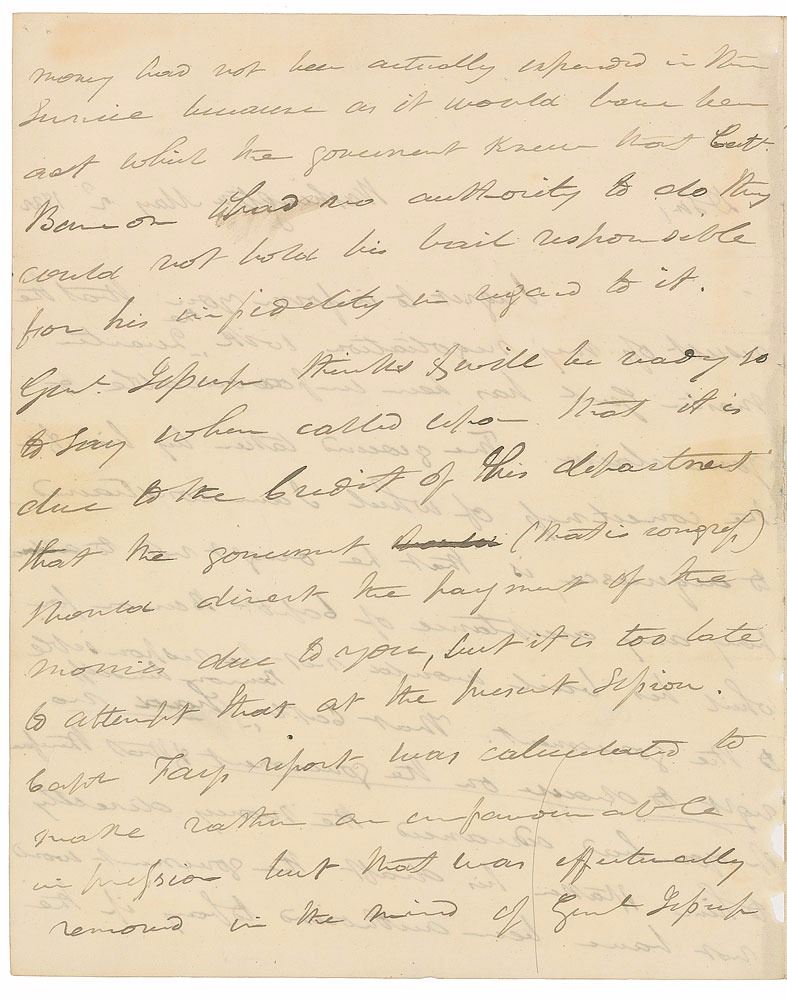 money had not been actually expended in their
Service because as it would have been
act which the government knew that Capt.
Barron had no authority to do they
could not hold his bail responsible
for his infidelity in regard to it.
Genl. Jesup thinks & will be ready so
to say when called upon that it is
due to the Credit of this department
that the goverment (that is congress)
should direct the payment of the
monies due to you, but it is too late
to attempt that at the present Session.
Capt Fays report was calculated to
make rather an unfavourable
impression but that was effectually
removed in the mind of Genl Jesup